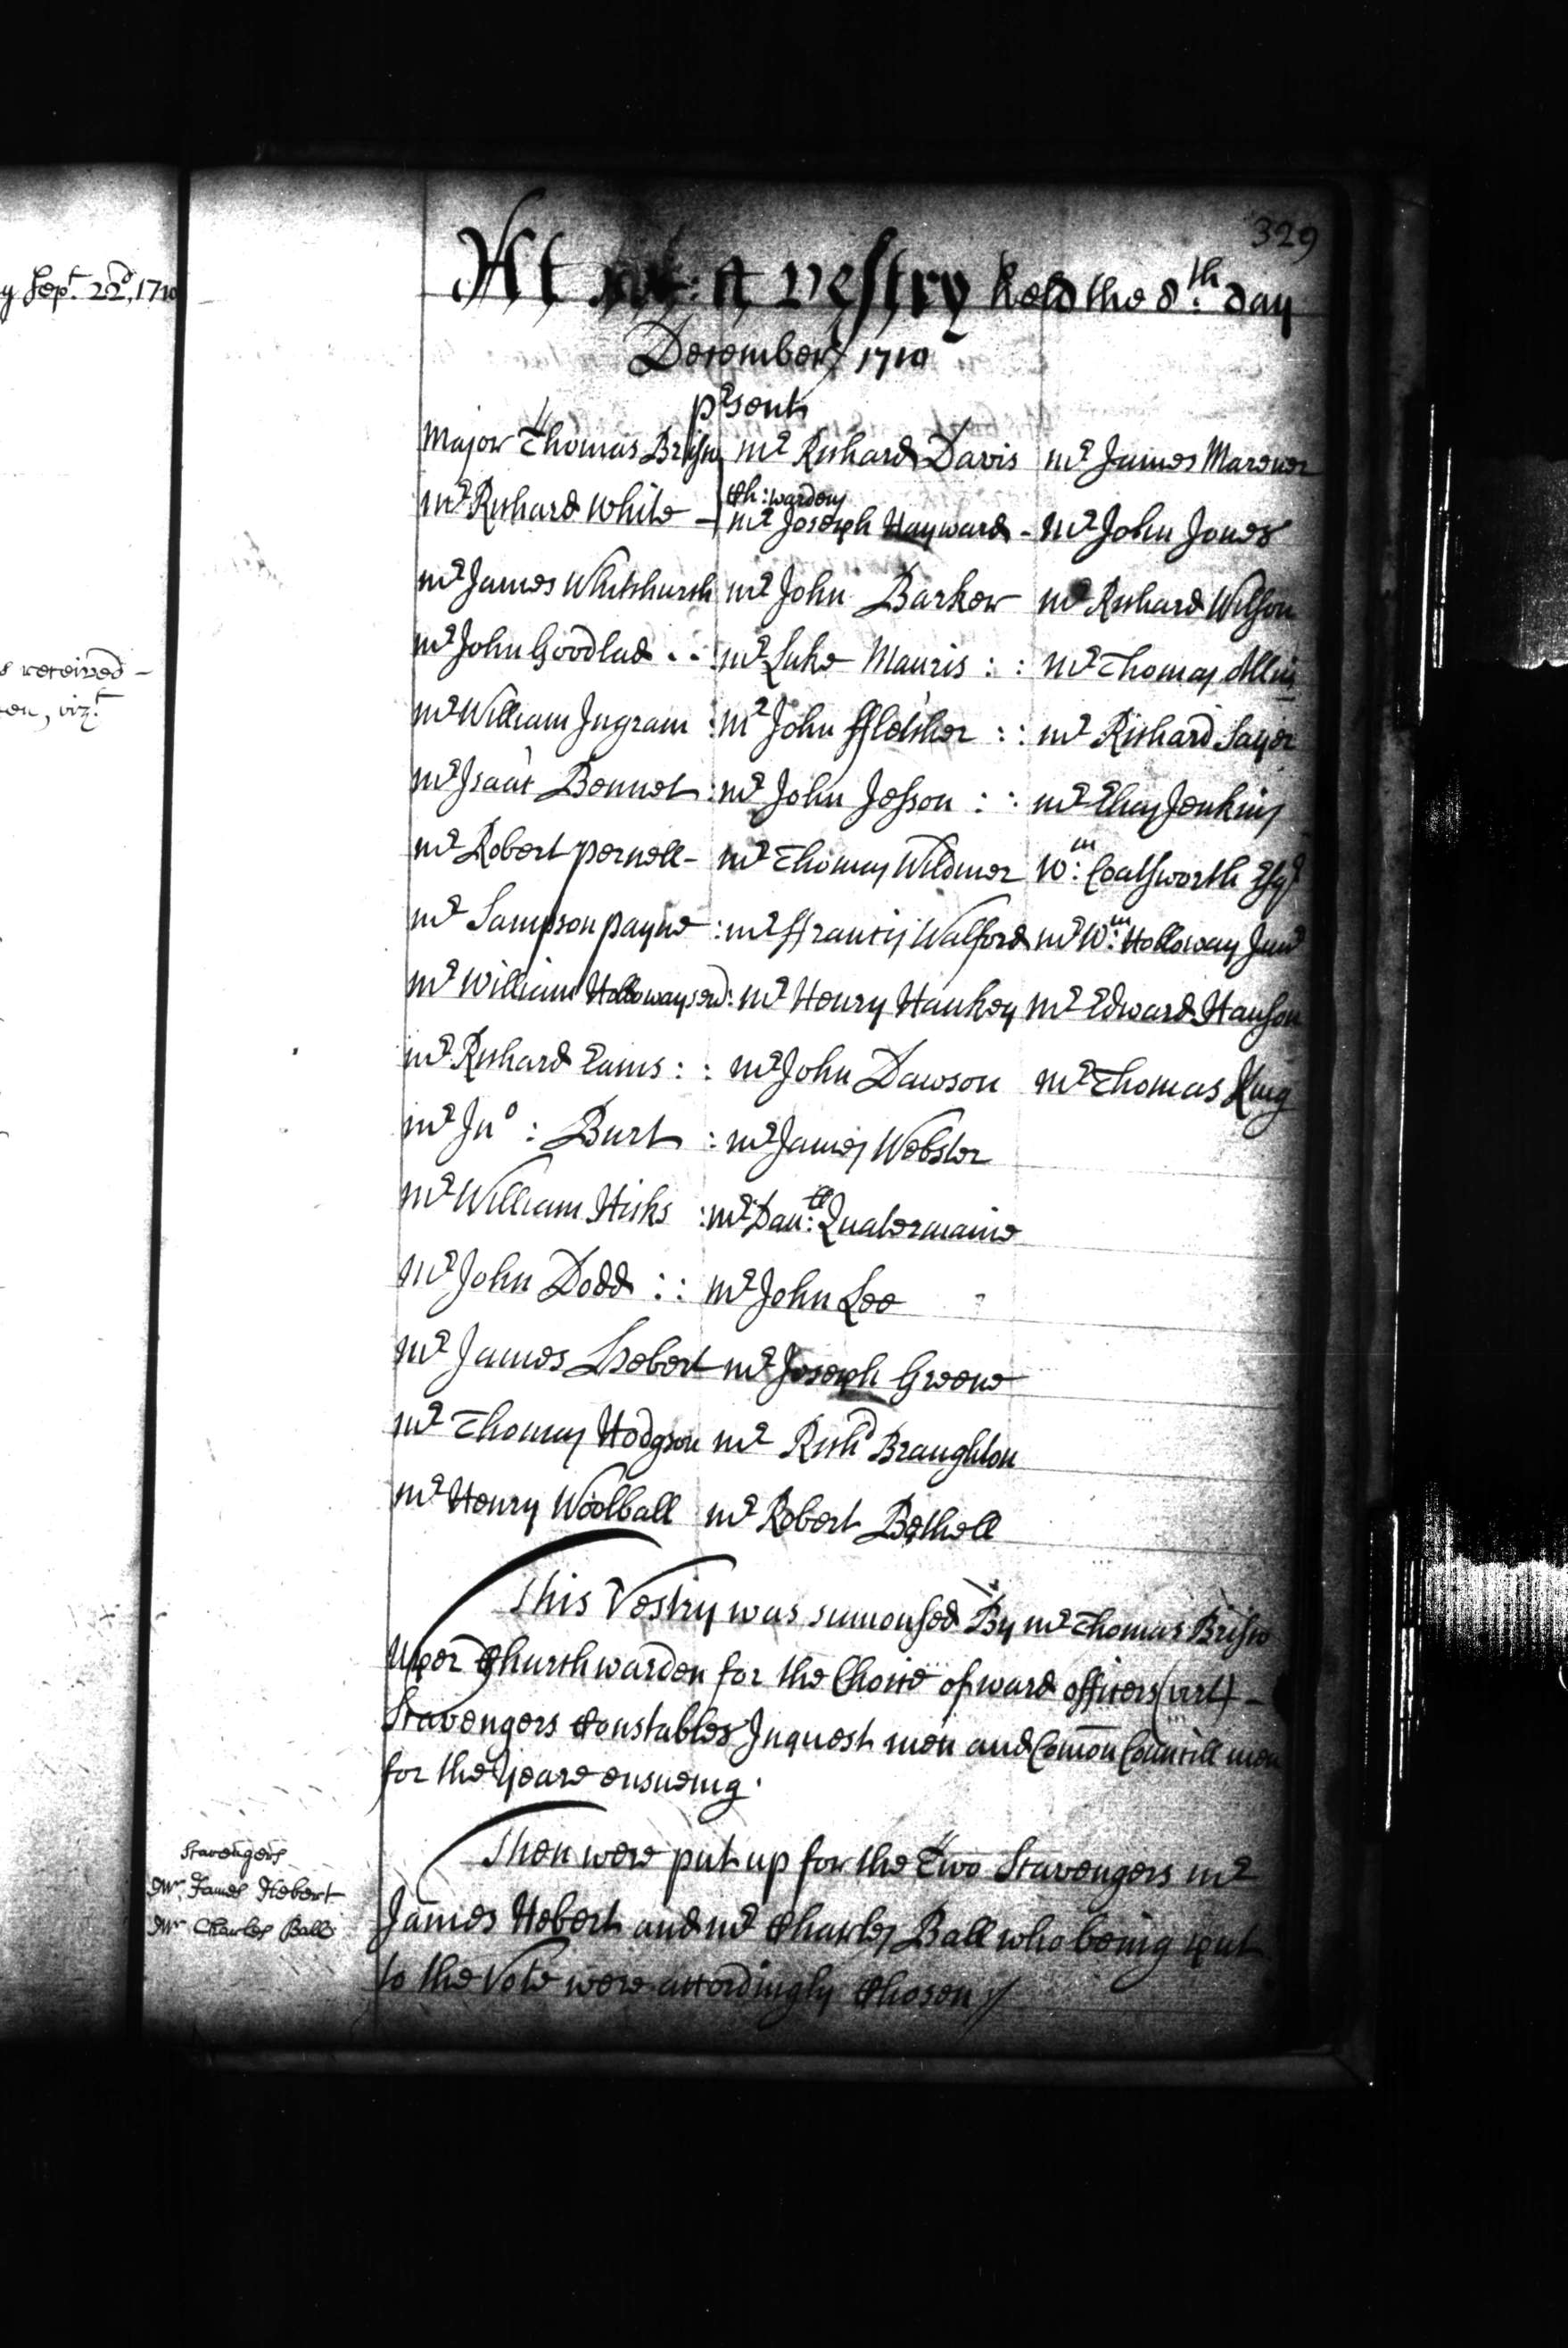 y Sep.t 22d, 1710
s received -
en, viz.t
329
At a vestry held the 8th: day
December 1710
p'sent
Major Thomas Brisco mr Richard Davis mr James Marener
Ch: wardens
mr Richard White - mr Joseph Hayward - mr John Jones
mr James Whitchurch mr John Barker mr Richard Wilson
mr John Goodlad : : mr Luke Mauris : : mr Thomas Allin
mr William Ingram : mr John ffletcher : : mr Richard Sayer
mr Isaac Bennet : mr John Jesson : : mr Elias Jenkins
mr Robert pernell - mr Thomas Wildmer Wm: Coatsworth Esqr
mr Sampson payne : mr ffrancis Walford mr Wm: Holloway Junr
mr William Holloway senr: mr Henry Hankey mr Edward Hanson
mr Richard Eams : : mr John Dawson mr Thomas King
mr Jno : Burt : mr James Webster
mr William Hicks : mr Dan:ll Quatermaine
mr John Dodd : : mr John Lee
mr James Hebert mr Joseph Greene
mr Thomas Hodgson mr Richd Braughton
mr Henry Woolball mr Robert Bethell
This Vestry was sumonsed By mr Thomas Brisco
Uper Churchwarden for the Choice of ward officers (vizt) -
Scavengers Constables Inquest men and Comon Councill men
for the yeare ensueing.
Scavengers
Mr James Hebert
Mr Charles Ball
Then were put up for the Two Scavengers mr
James Hebert and mr Charles Ball who being put
to the Vote were accordingly Chosen //